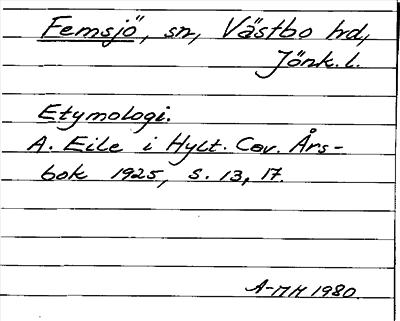 Femsjö, sn, Västbo hd,
Jönk. l.
Etymologi.
A. Eile i Hylt. Cav. Års-
bok 1925, s. 13, 17.
A-MH 1980.